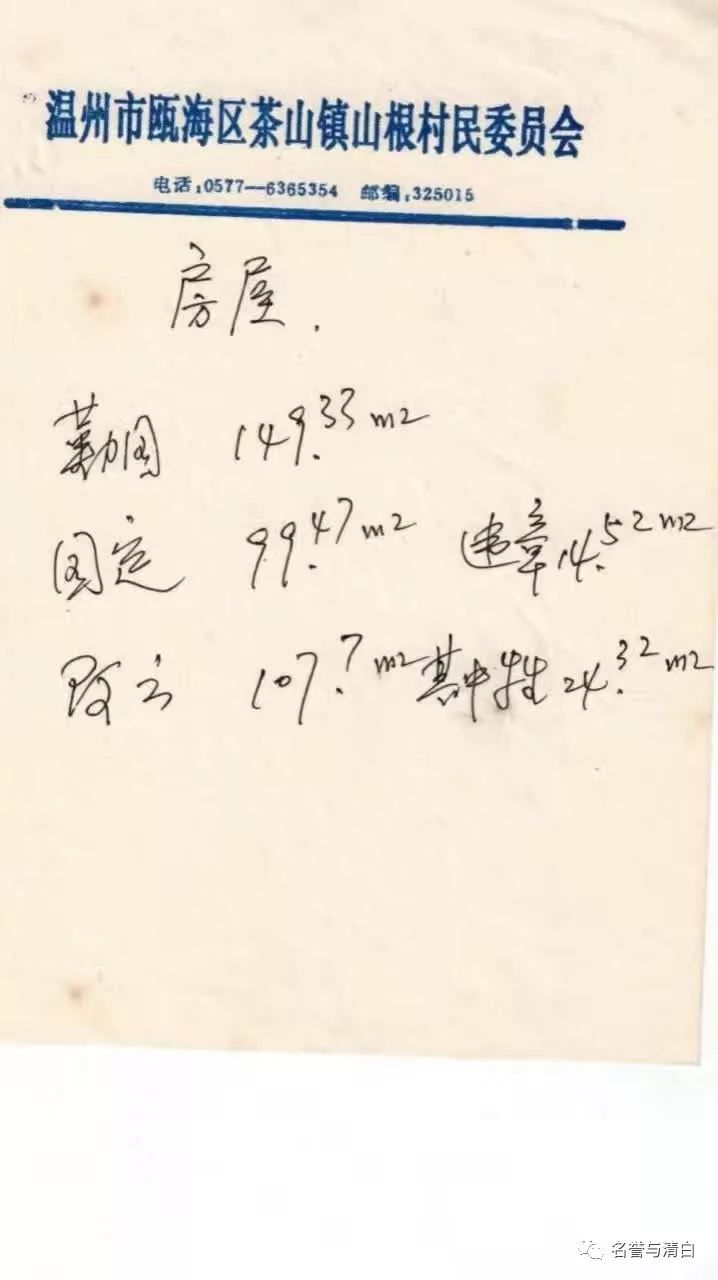 温州市瓯海区茶山镇山根村民委员会
电话:0577—6365354 邮编:325015
房屋.
勤国 149.33 m2
国定 99.47 m2 违章14.52 m2
阿云 107.7 m2 其中 24.32 m2
名誉与清白